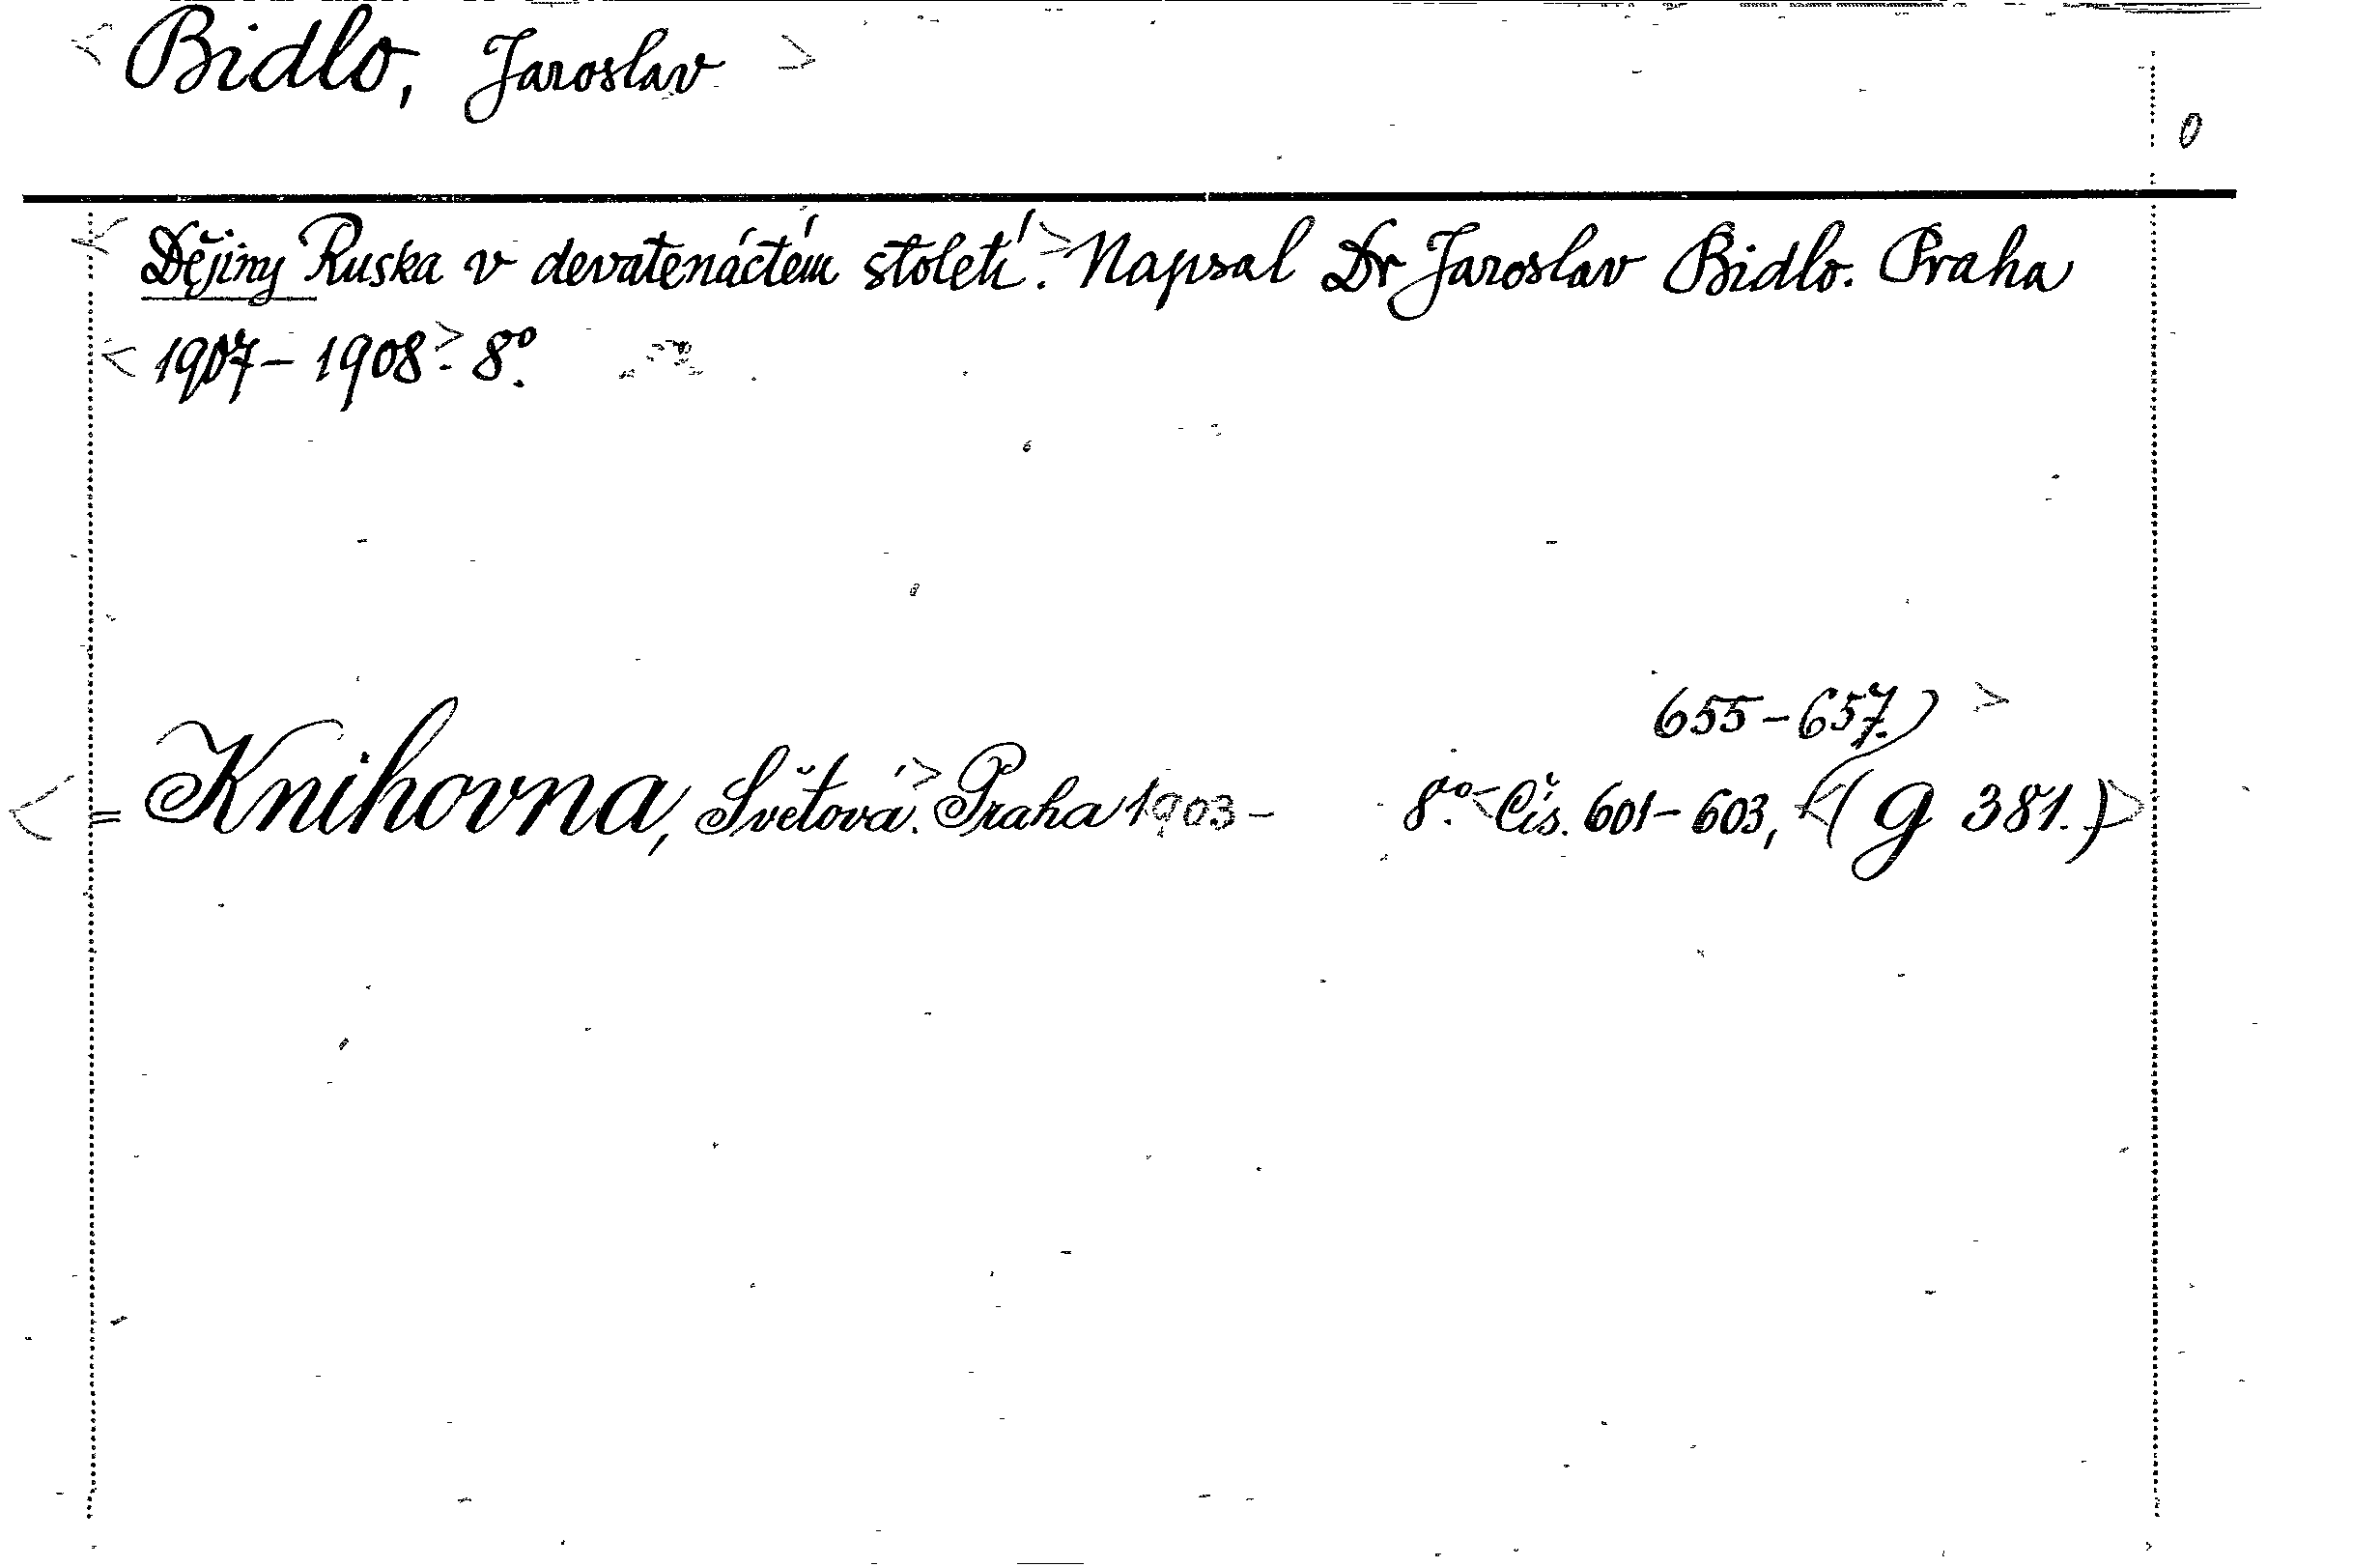 < Bidlo, Jaroslav >
0
< Dějiny Ruska v devatenáctém století. > Napsal Dr Jaroslav Bidlo. Praha
< 1907 – 1908 >. 8º.
655 – 657.) >
< = Knihovna, Světová. > Praha 1903 – 8º. < Čís. 601 – 603, < (G 381.) >